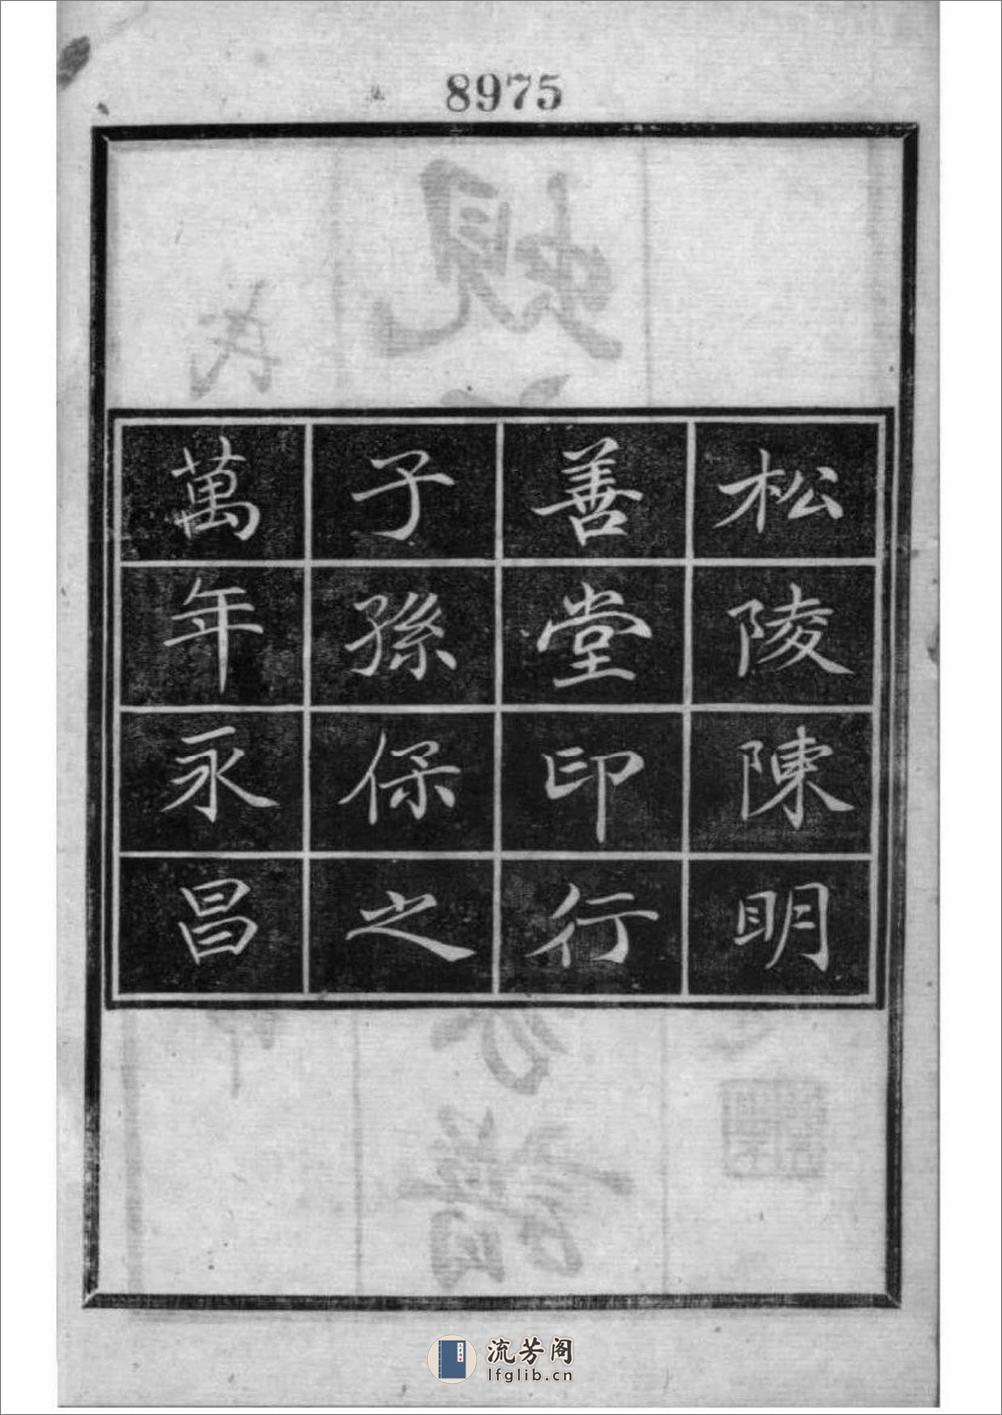 8975
松陵陳明
善堂印行
子孫保之
萬年永昌
流芳阁
lfglib.cn